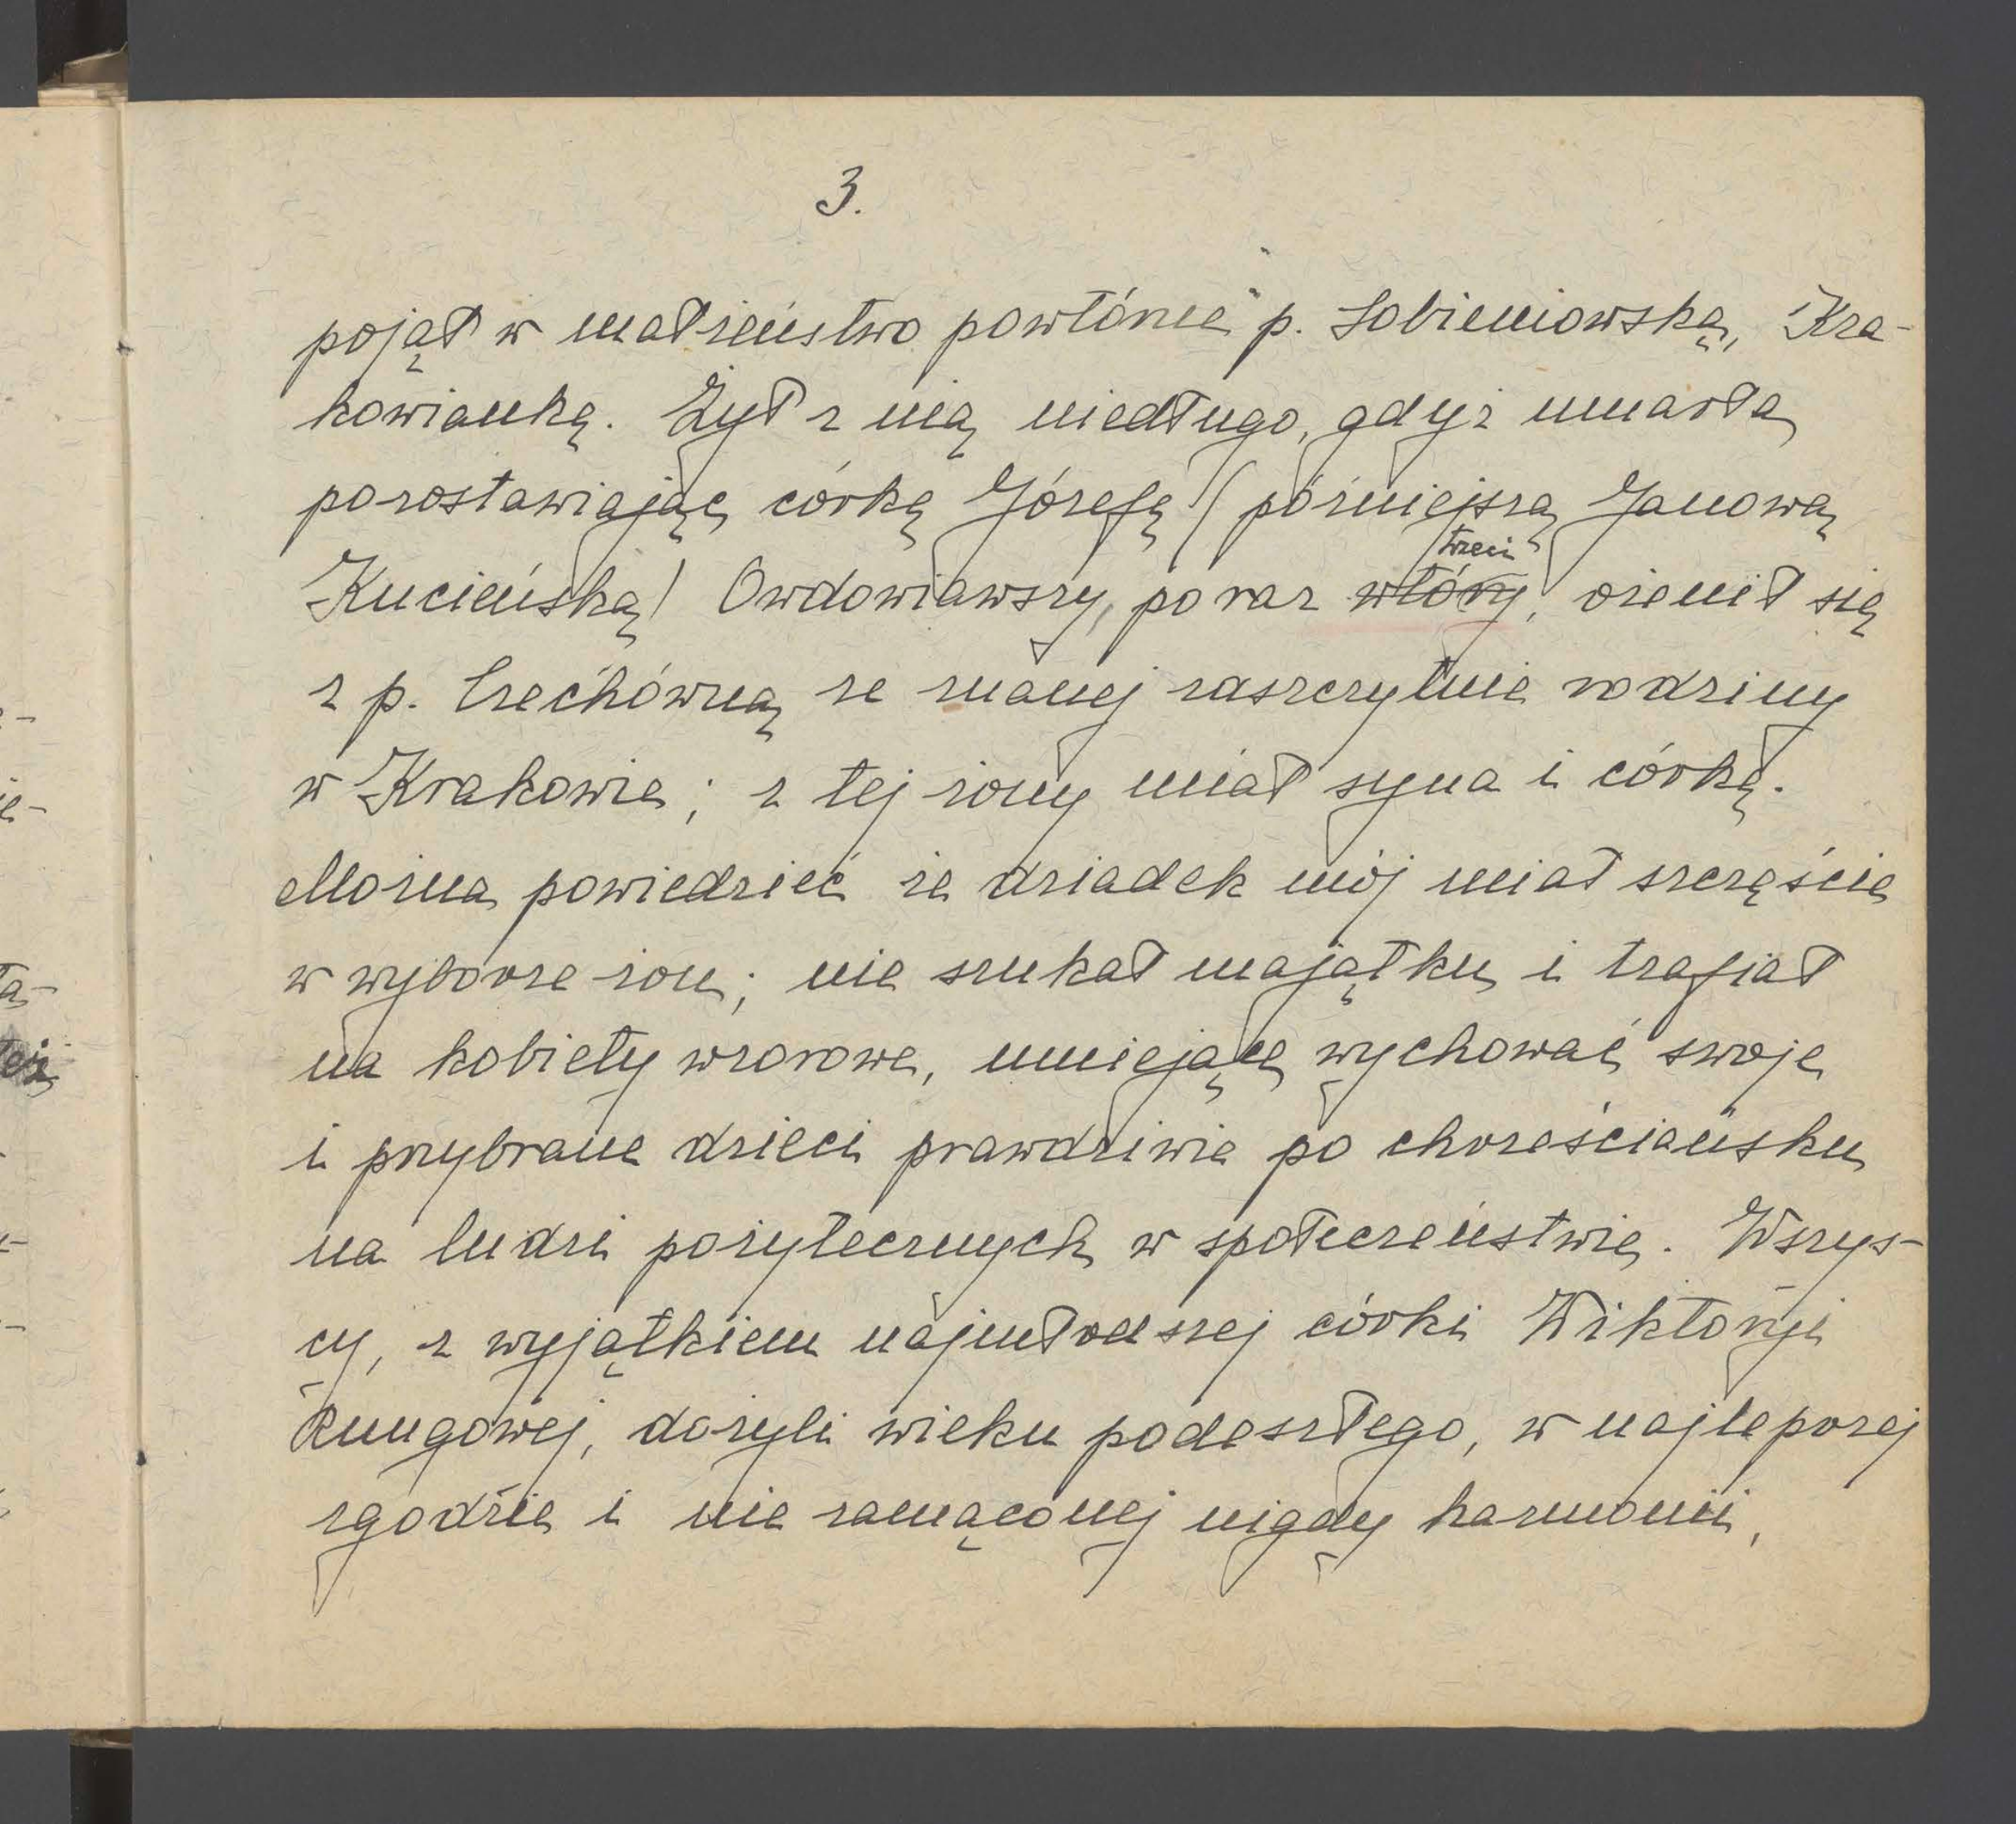 3.
pojął w małżeństwo powtórnie p. Sobieniowską, Kra-
kowiankę. Żył z nią niedługo, gdyż umarła
pozostawiając córkę Józefę (późniejszą Janową
trzeci
Kucieńską) Owdowiawszy, po raz wtóry, ożenił się
z p. Czechówną ze znanej zaszczytnie rodziny
w Krakowie; z tej żony miał syna i córkę.
Można powiedzieć że dziadek mój miał szczęście
w wyborze żon; nie szukał majątku i trafiał
na kobiety wzorowe, umiejące wychować swoje
i przybrane dzieci prawdziwie po chrześciańsku
na ludzi pożytecznych w społeczeństwie. Wszys-
cy, z wyjątkiem najmłodszej córki Wiktorji
Rungowej, dożyli wieku podeszłego, w najlepszej
zgodzie i nie zamąconej nigdy harmonii,